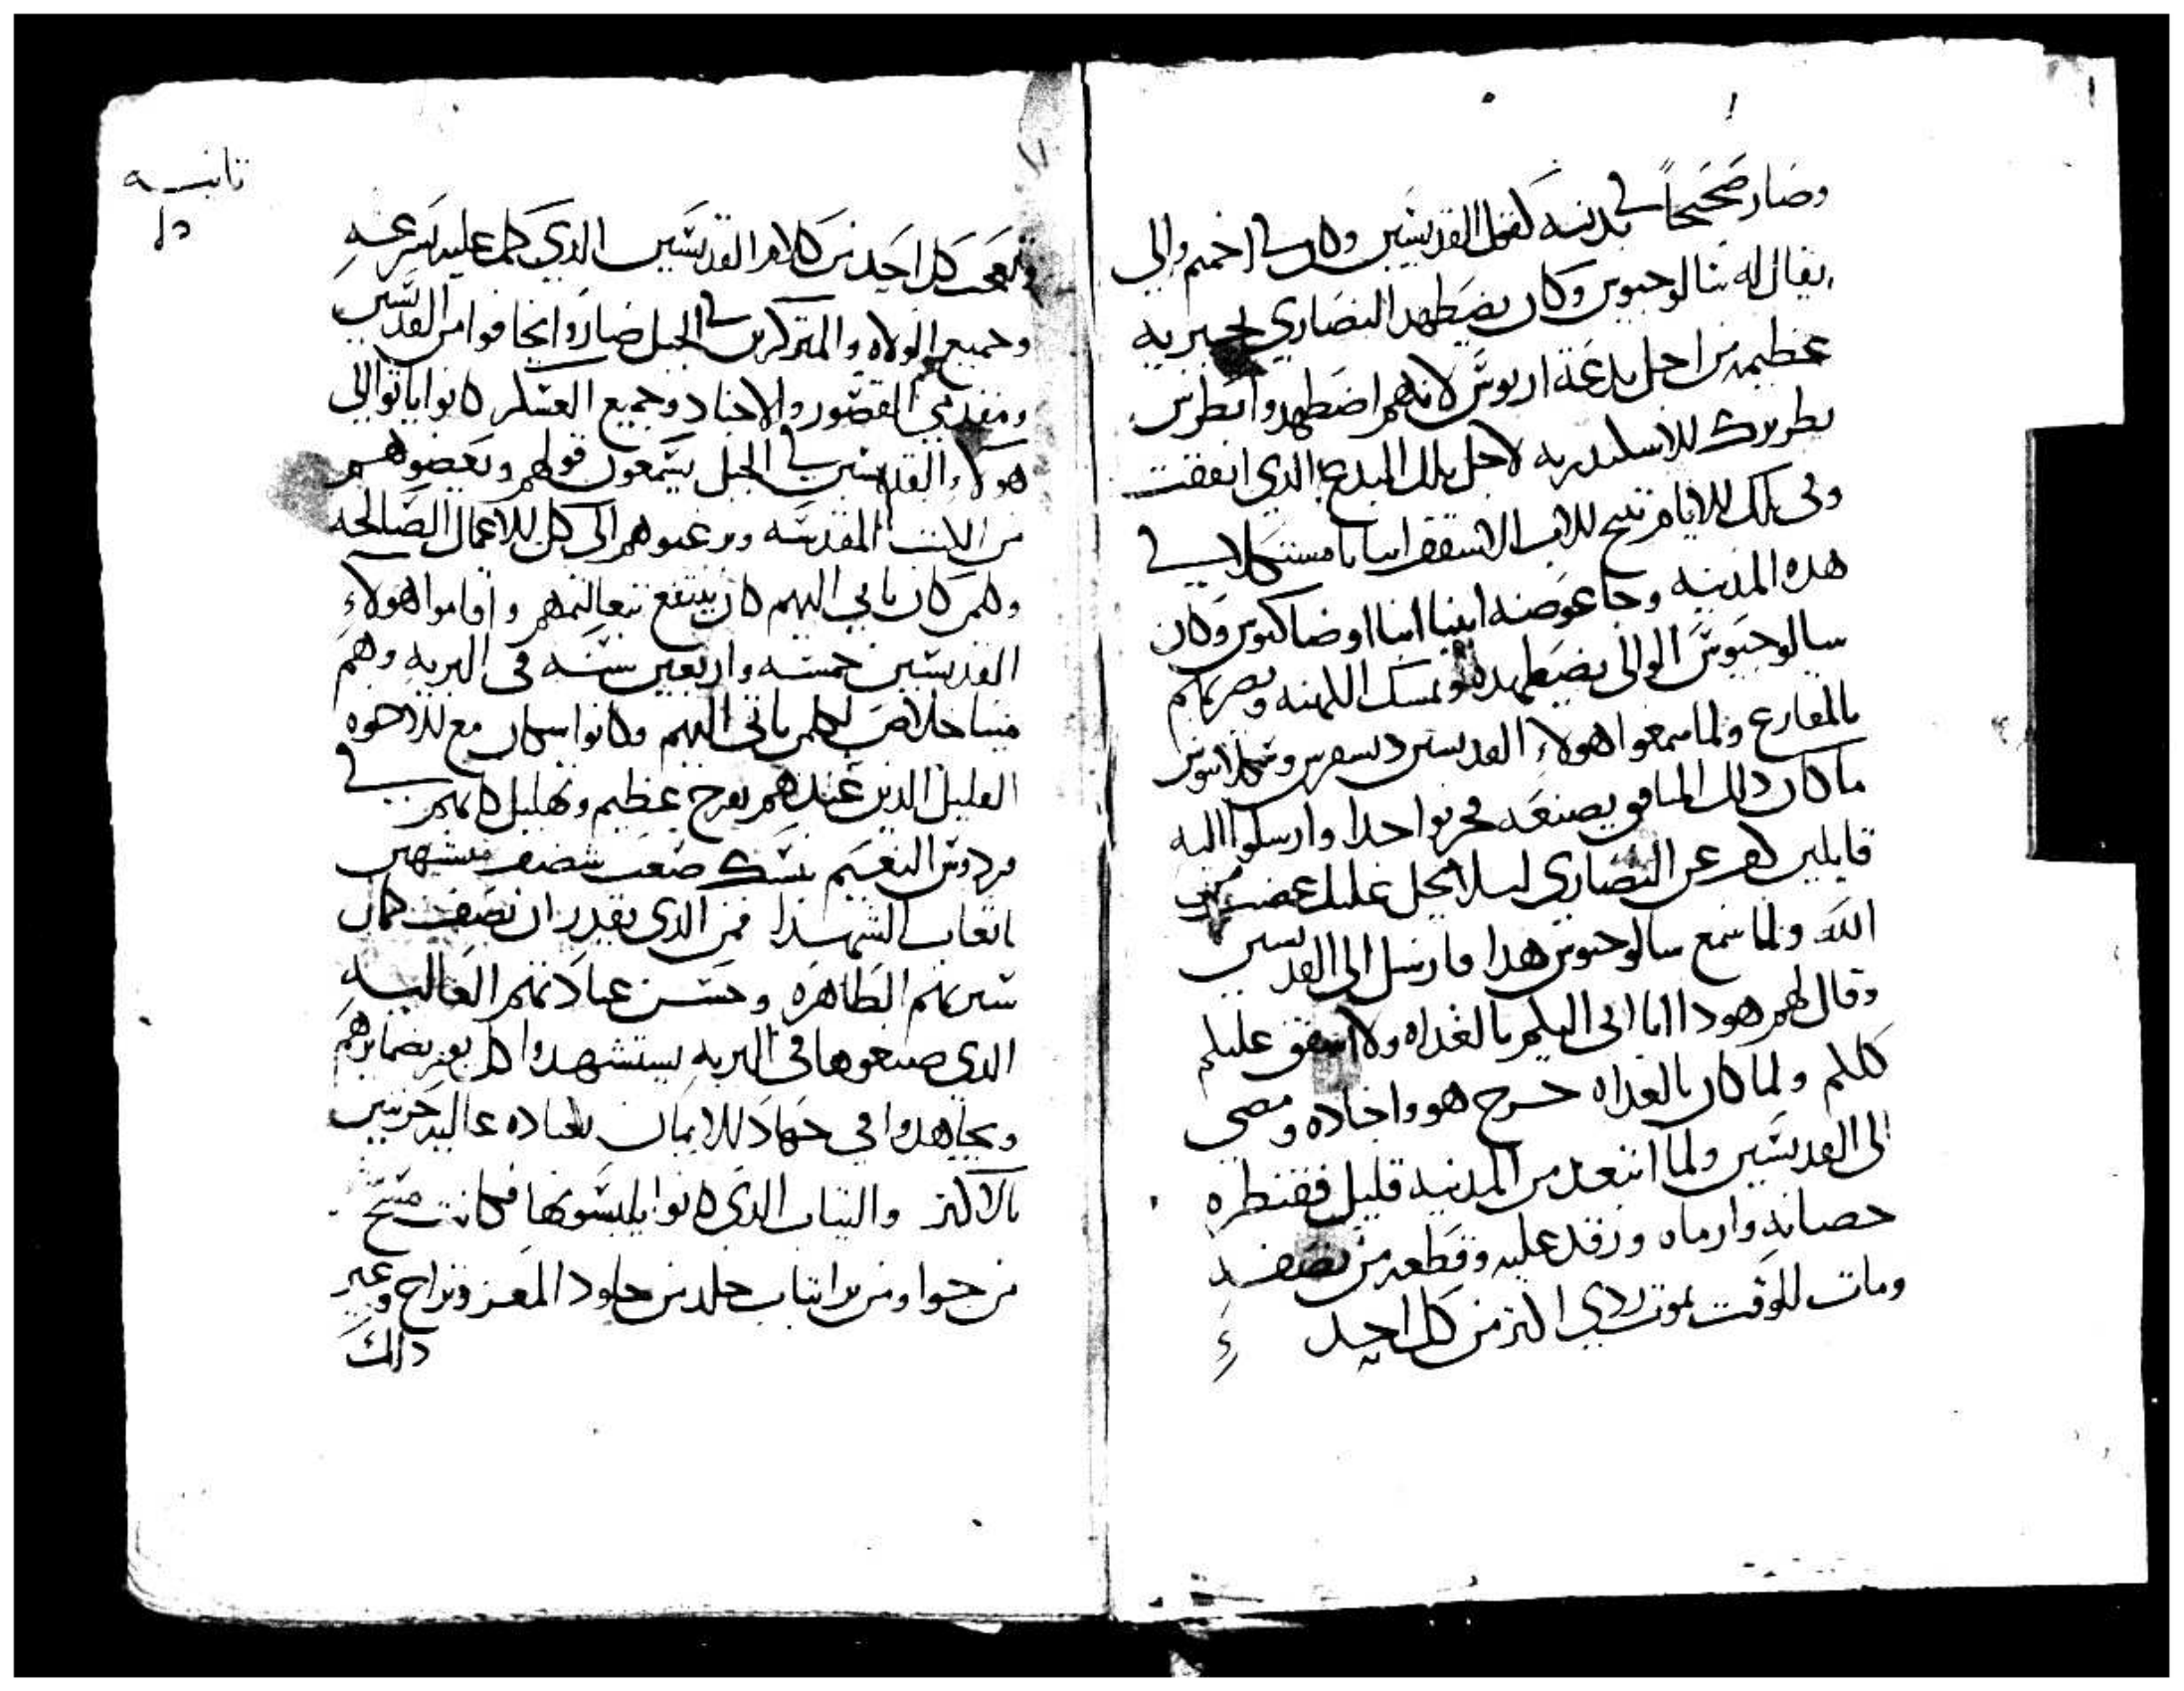 وصار صحيحاً في بدنه كقول القديسين وكان في اخميم والي
يقال له سالوجيوس وكان يضطهد النصاري
عظيمه من اجل بدعة اريوس لانهم اضطهدوا بطرس
بطريرك الاسكندريه لاجل تلك البدع الذي اتفقت
وفي تلك الايام تنيح الاب الاسقف انبا في
هذه المدينه وجا عوضه ابينا انبا اوضاكيوس وكان
سالوجيوس الوالي يضطهده ومسك الكهنه وضربهم
بالمقارع ولما سمعوا هولاء القديسين ديسقرس وسكلابيوس
ما كان ذلك المنافق يصنعه فحزنوا جدا وارسلوا اليه
قايلين كف عن النصاري ليلا يحل عليك غضب من
الله ولما سمع سالوجيوس هذا فارسل الي القديسين
وقال لهم هودا انا اتي اليكم بالغداه ولا اشفق عليكم
كلكم ولما كان بالغداه خرج هو واجناده ومضي
الي القديسين ولما ابتعد من المدينه قليل فقنطره
حصانه وارماه ورقد عليه وقطعه من نصفه
ومات للوقت بموت ردي اكتر من كل احد
تانيه
وتعجب كل احد من كلام القديسين الذي كمل عليه بسرعه
وجميع الولاه والمتركزين في الجبل صاروا يخافوا من القديسين
ومقدمي القصور والاجناد وجميع العسكر كانوا ياتوا الي
هولاء القديسين في الجبل يسمعون قولهم ويعضوهم
من الكتب المقدسه ويرغبوهم الي كل الاعمال الصالحه
وكلمن كان ياتي اليهم كان ينتفع بتعاليمهم واقاموا هولاء
القديسين خمسه واربعين سنه في البريه وهم
مينا خلاص لكلمن ياتي اليهم وكانوا يسكان مع الاخوه
القليل الذين عندهم بفرح عظيم وتهليل كانهم في
فردوس النعيم بنسك صعب متشبهين
باتعاب الشهدا فمن الذي يقدر ان يصف كمال
سيرتهم الطاهره وحسن عبادتهم العاليه
الذي صنعوها في البريه يستشهدوا كل يوم بضمايرهم
ويجاهدوا في جهاد الايمان بعباده عاليه حزينين
بالاكتر والتياب الذي كانوا يلبسوها فكانت مسح
من جوا ومن برا تياب جلد من جلود المعز ومراح وغير
ذلك